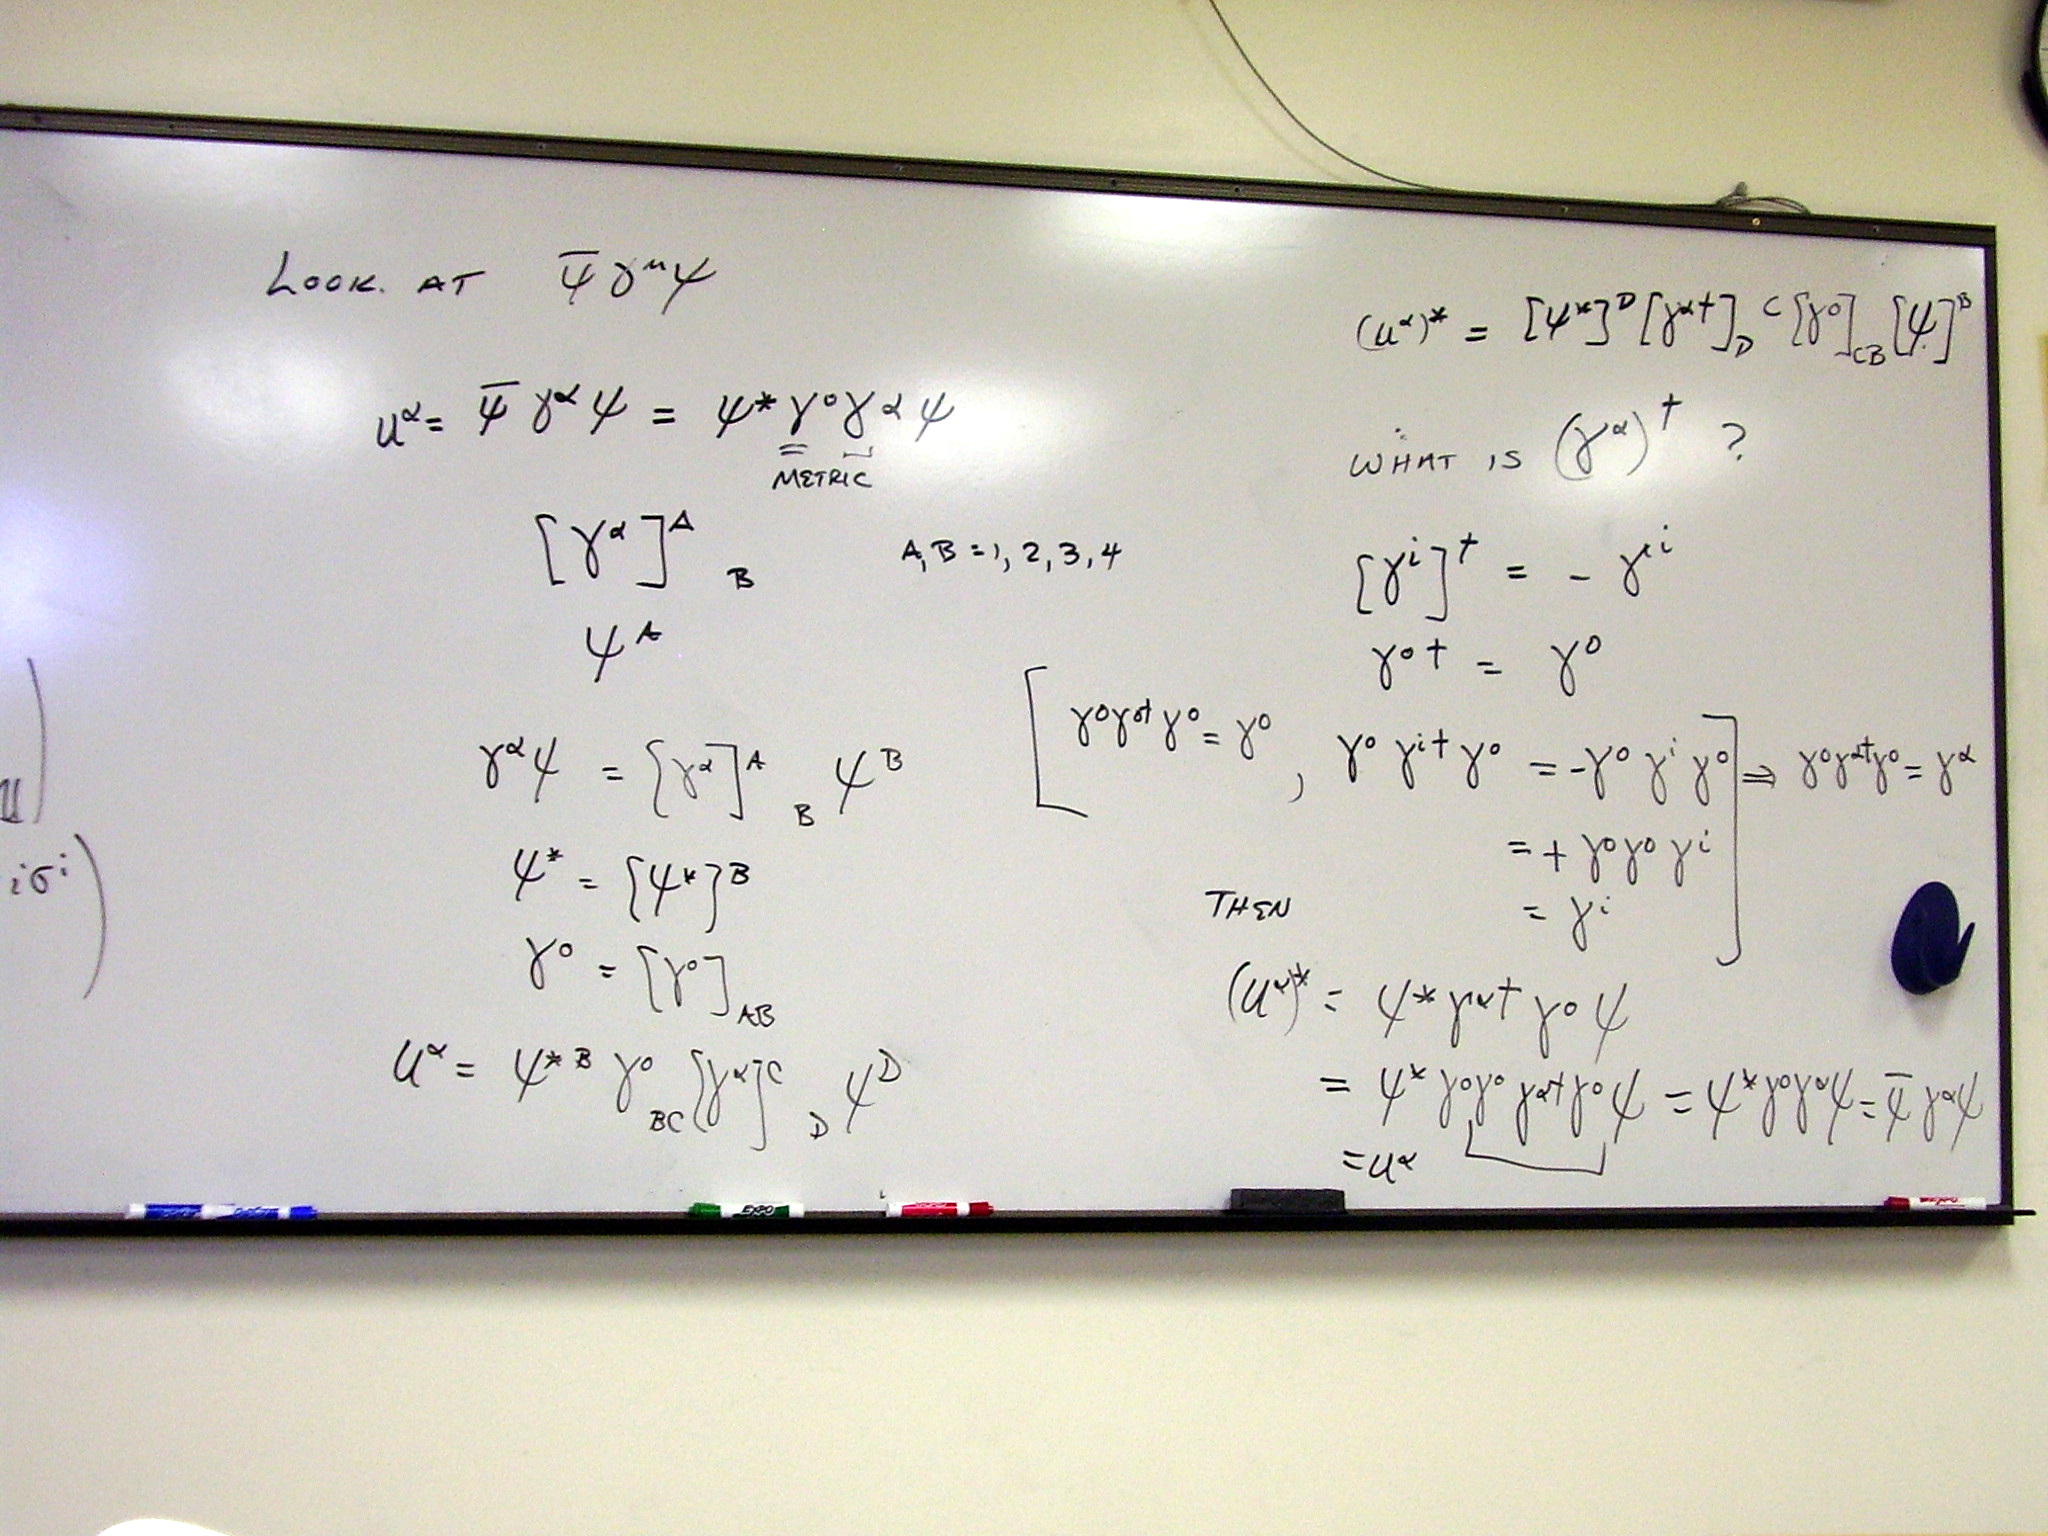 LOOK AT ψ̄ γ^μ ψ
u^α = ψ̄ γ^α ψ = ψ* γ^0 γ^α ψ
METRIC
[γ^α]^A_B    A, B = 1, 2, 3, 4
ψ^A
γ^α ψ = [γ^α]^A_B ψ^B
ψ* = [ψ*]^B
γ^0 = [γ^0]_AB
u^α = ψ*^B γ^0_BC [γ^α]^C_D ψ^D
(u^α)* = [ψ*]^D [γ^α†]_D^C [γ^0]_CB [ψ]^B
WHAT IS (γ^α)^† ?
[γ^i]^† = - γ^i
γ^0† = γ^0
[ γ^0 γ^0† γ^0 = γ^0 , γ^0 γ^i† γ^0 = - γ^0 γ^i γ^0 ] ⇒ γ^0 γ^α† γ^0 = γ^α
= + γ^0 γ^0 γ^i
= γ^i
THEN
(u^α)* = ψ* γ^α† γ^0 ψ
= ψ* γ^0 γ^0 γ^α† γ^0 ψ = ψ* γ^0 γ^α ψ = ψ̄ γ^α ψ
= u^α
iσ^i )
EXPO